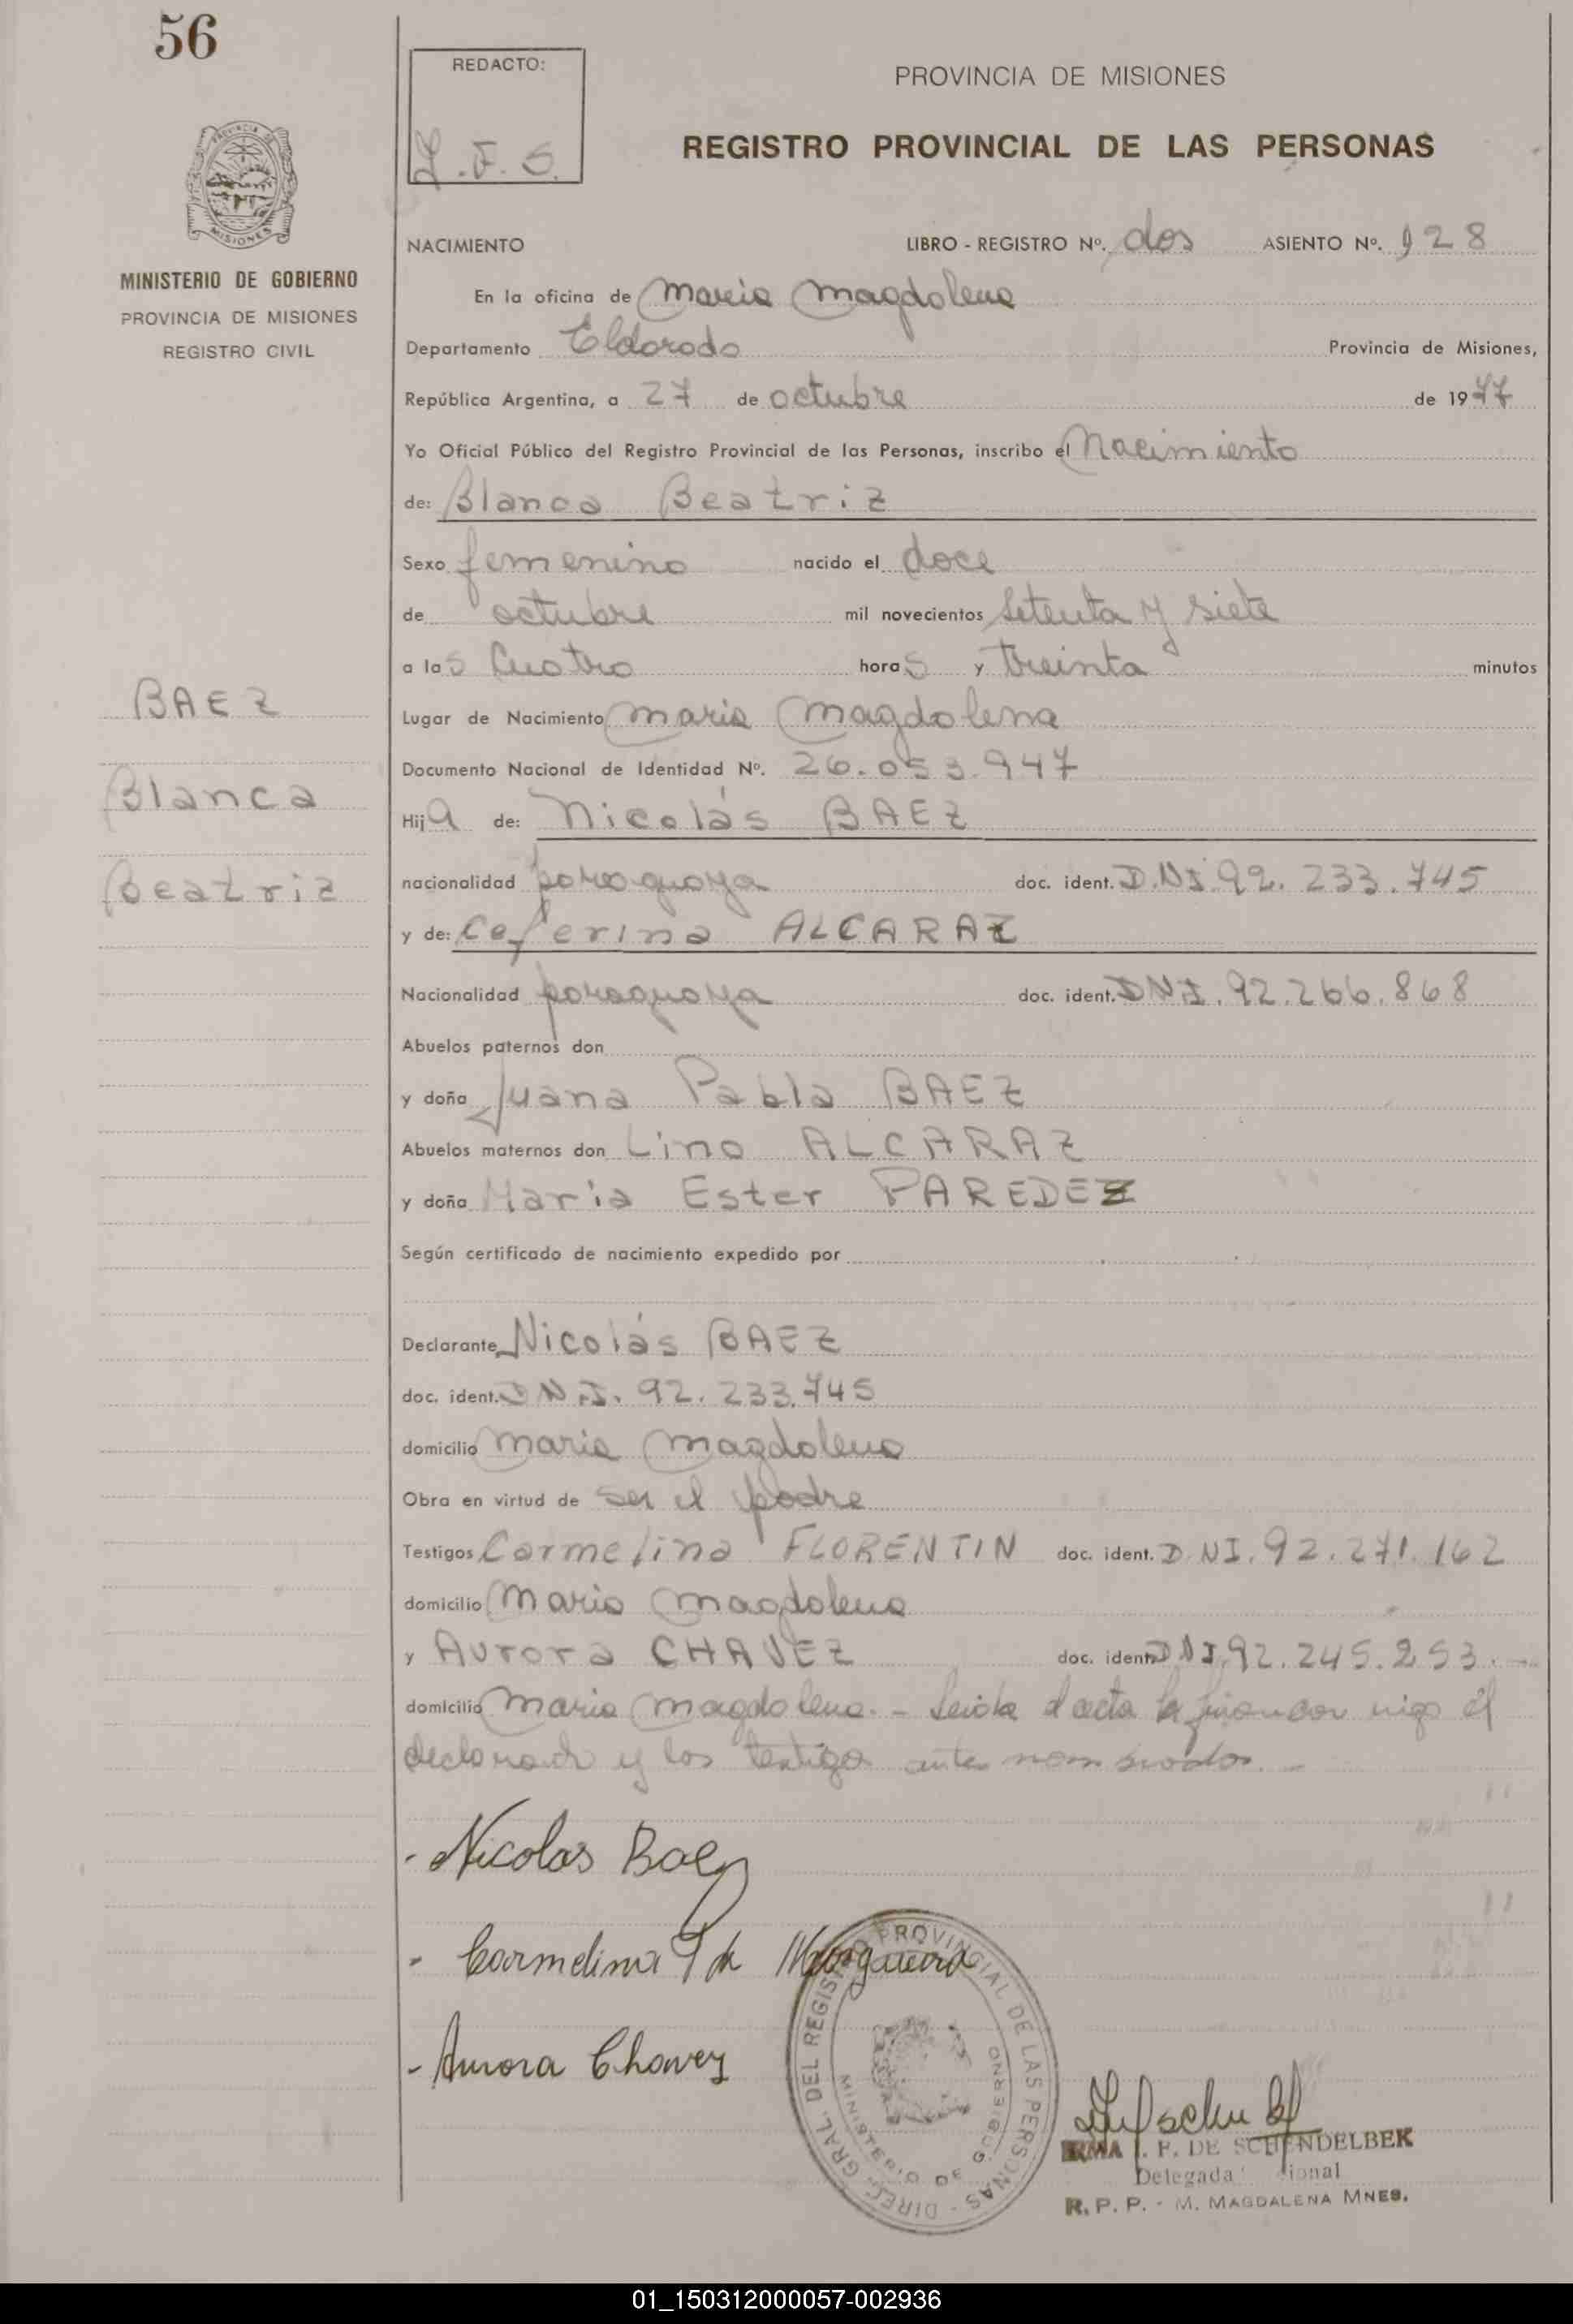 56
REDACTO:
PROVINCIA DE MISIONES
REGISTRO PROVINCIAL DE LAS PERSONAS
MISIONES
MINISTERIO DE GOBIERNO
PROVINCIA DE MISIONES
REGISTRO CIVIL
NACIMIENTO LIBRO - REGISTRO Nº. dos ASIENTO Nº. 928
En la oficina de Maria Magdalena
Departamento Eldorado Provincia de Misiones,
República Argentina, a 27 de octubre de 1977
Yo Oficial Público del Registro Provincial de las Personas, inscribo el Nacimiento
de: Blanca Beatriz
Sexo femenino nacido el doce
de octubre mil novecientos setenta y siete
a las cuatro horas y treinta minutos
BAEZ
Blanca
Beatriz
Lugar de Nacimiento Maria Magdalena
Documento Nacional de Identidad Nº. 26.053.947
Hija de: Nicolás BAEZ
nacionalidad paraguaya doc. ident. D.N.I. 92.233.745
y de: Ceferina ALCARAZ
Nacionalidad paraguaya doc. ident. DNI. 92.266.868
Abuelos paternos don
y doña Juana Pabla BAEZ
Abuelos maternos don Lino ALCARAZ
y doña Maria Ester PAREDEZ
Según certificado de nacimiento expedido por
Declarante Nicolás BAEZ
doc. ident. D.N.I. 92.233.745
domicilio Maria Magdalena
Obra en virtud de ser el padre
Testigos Carmelina FLORENTIN doc. ident. D NI. 92.271.162
domicilio Maria Magdalena
y Aurora CHAVEZ doc. ident. DNI. 92.245.253.
domicilio Maria Magdalena. - Leida el acta la firman con migo el
declarante y los testigos antes nombrados. -
- Nicolas Baez
- Carmelina
- Aurora Chavez
DIREC. GRAL. DEL REGISTRO PROVINCIAL DE LAS PERSONAS -
MINISTERIO DE GOBIERNO
IRMA F. DE SCHENDELBEK
Delegada
R. P. P. - M. MAGDALENA MNES.
01_150312000057-002936